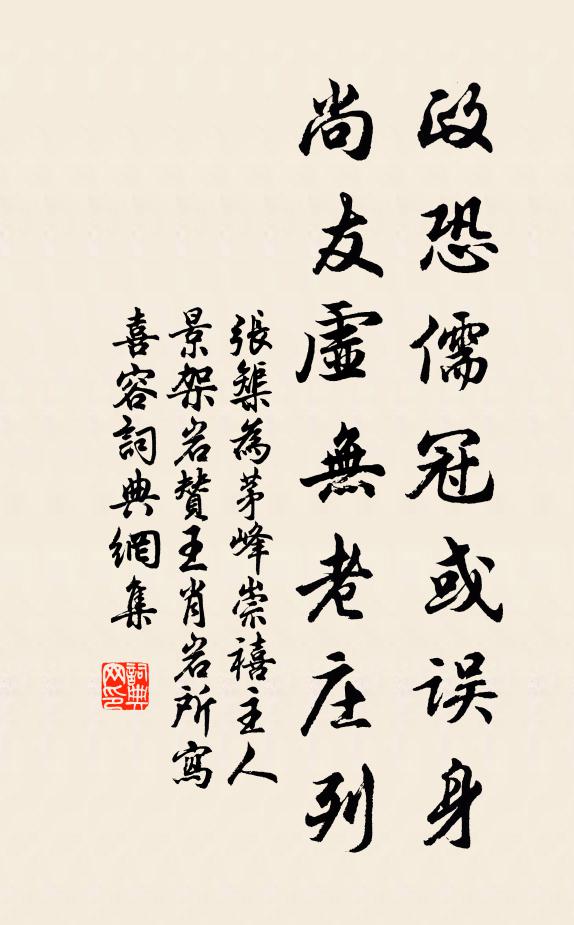 政恐儒冠或误身
尚友虛無老庄列
張榘為茅峰崇禧主人
景架岩贊王肖岩所寫
喜容詞典網集
詞典網印